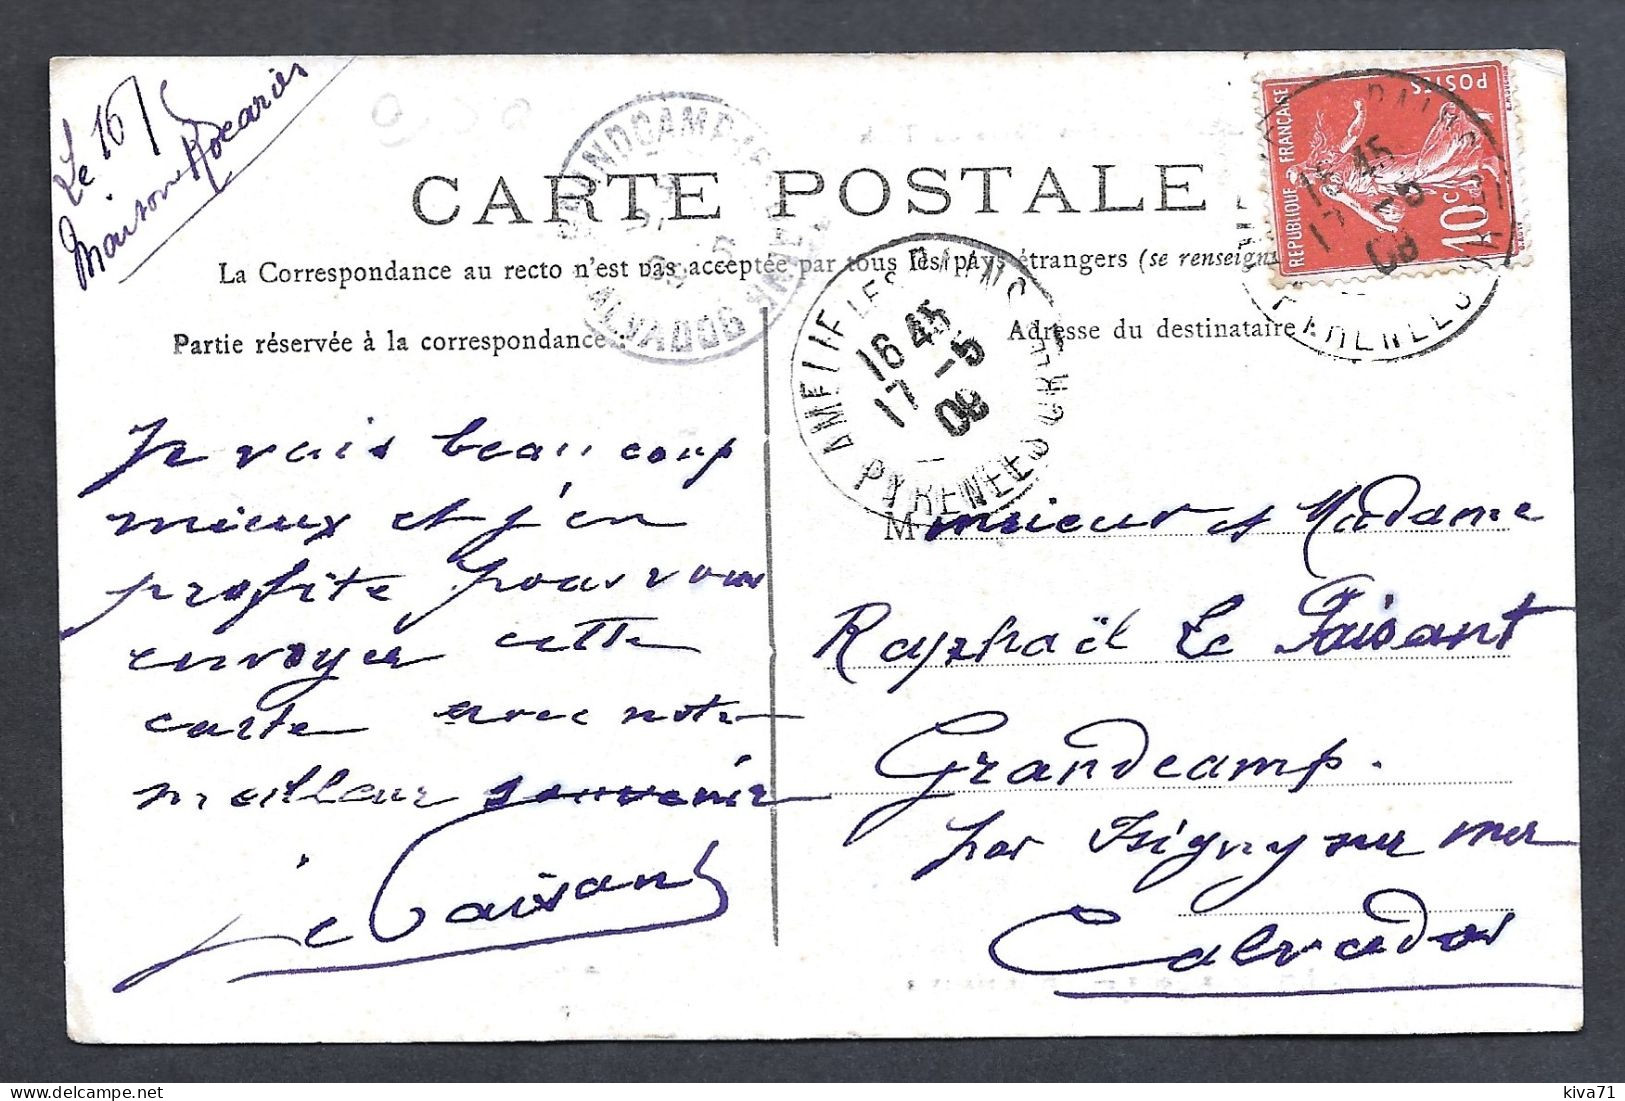 Le 16/5
Maison
CARTE POSTALE
La Correspondance au recto n'est pas acceptée par tous les pays étrangers (se renseign
Partie réservée à la correspondance :
Adresse du destinataire :
REPUBLIQUE FRANÇAISE
POSTES
10c
AMELIE LES BAINS
16 45
17 -5
08
PYRENEES ORles
GRANDCAMP-LES-BAINS
CALVADOS
BAINS
16 45
17 -5
08
PYRENEES
Je vais beaucoup
mieux et j'en
profite pour vous
envoyer cette
carte avec notre
meilleur souvenir
Le Paisant
Monsieur et Madame
Raphaël Le Paisant
Grandcamp.
par Isigny sur mer
Calvados
kiva71